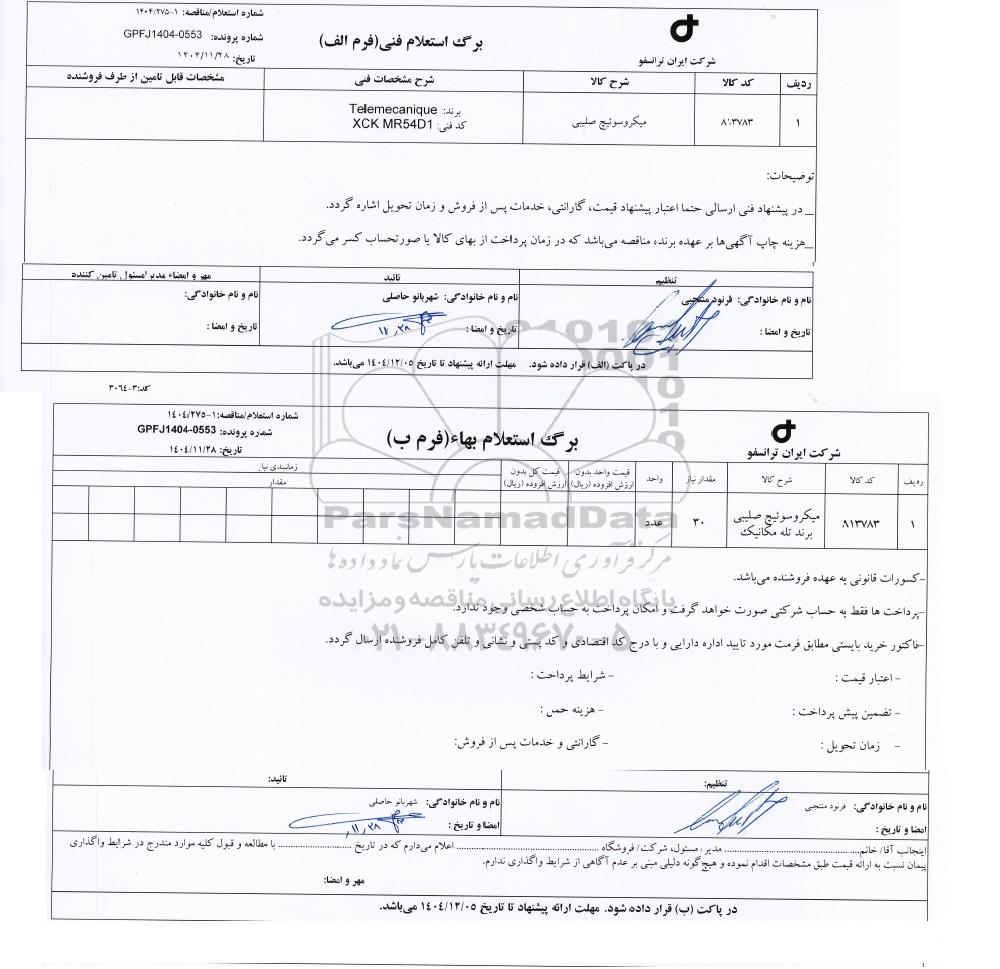 شماره استعلام/مناقصه: ۱-۱۴۰۴/۲۷۵
شماره پرونده: GPFJ1404-0553
تاریخ: ۱۴۰۴/۱۱/۲۸
برگ استعلام فنی(فرم الف)
شرکت ایران ترانسفو
ردیف کد کالا شرح کالا شرح مشخصات فنی مشخصات قابل تامین از طرف فروشنده
۱ ۸۱۳۷۸۳ میکروسوئیچ صلیبی برند: Telemecanique
کد فنی: XCK MR54D1
توصیحات:
_ در پیشنهاد فنی ارسالی حتما اعتبار پیشنهاد قیمت، گارانتی، خدمات پس از فروش و زمان تحویل اشاره گردد.
_هزینه چاپ آگهی‌ها بر عهده برنده مناقصه می‌باشد که در زمان پرداخت از بهای کالا یا صورتحساب کسر می‌گردد.
تنظیم تائید مهر و امضاء مدیر/مسئول تامین کننده
نام و نام خانوادگی: فرنود منتجبی نام و نام خانوادگی: شهربانو حاصلی نام و نام خانوادگی:
تاریخ و امضا : تاریخ و امضا : ۱۱,۲۸ تاریخ و امضا :
در پاکت (الف) قرار داده شود. مهلت ارائه پیشنهاد تا تاریخ ۱۴۰۴/۱۲/۰۵ می‌باشد.
کد:۳-۳۰۶۴
شماره استعلام/مناقصه:۱-۱۴۰۴/۲۷۵
شماره پرونده: GPFJ1404-0553
تاریخ: ۱۴۰۴/۱۱/۲۸
برگ استعلام بهاء(فرم ب)
شرکت ایران ترانسفو
ردیف کد کالا شرح کالا مقدار نیاز واحد قیمت واحد بدون ارزش افزوده (ریال) قیمت کل بدون ارزش افزوده (ریال) زمانبندی نیاز
مقدار
۱ ۸۱۳۷۸۳ میکروسوئیچ صلیبی برند تله مکانیک ۳۰ عدد
ParsNamadData
مرکز فرآوری اطلاعات پارس نماد داده ها
پایگاه اطلاع رسانی مناقصه و مزایده
۰۲۱-۸۸۳۴۹۶۷۰-۵
-کسورات قانونی به عهده فروشنده می‌باشد.
-پرداخت ها فقط به حساب شرکتی صورت خواهد گرفت و امکان پرداخت به حساب شخصی وجود ندارد.
-فاکتور خرید بایستی مطابق فرمت مورد تایید اداره دارایی و با درج کد اقتصادی و کد پستی و نشانی و تلفن کامل فروشنده ارسال گردد.
- اعتبار قیمت : - شرایط پرداخت :
- تضمین پیش پرداخت : - هزینه حمل :
- زمان تحویل : - گارانتی و خدمات پس از فروش:
تنظیم: تائید:
نام و نام خانوادگی: فرنود منتجبی نام و نام خانوادگی: شهربانو حاصلی
امضا و تاریخ : امضا و تاریخ : ۱۱,۲۸
اینجانب آقا/ خانم........ مدیر/مسئول، شرکت/ فروشگاه ........ اعلام می‌دارم که در تاریخ ........ با مطالعه و قبول کلیه موارد مندرج در شرایط واگذاری
پیمان نسبت به ارائه قیمت طبق مشخصات اقدام نموده و هیچ‌گونه دلیلی مبنی بر عدم آگاهی از شرایط واگذاری ندارم.
مهر و امضا:
در پاکت (ب) قرار داده شود. مهلت ارائه پیشنهاد تا تاریخ ۱۴۰۴/۱۲/۰۵ می‌باشد.